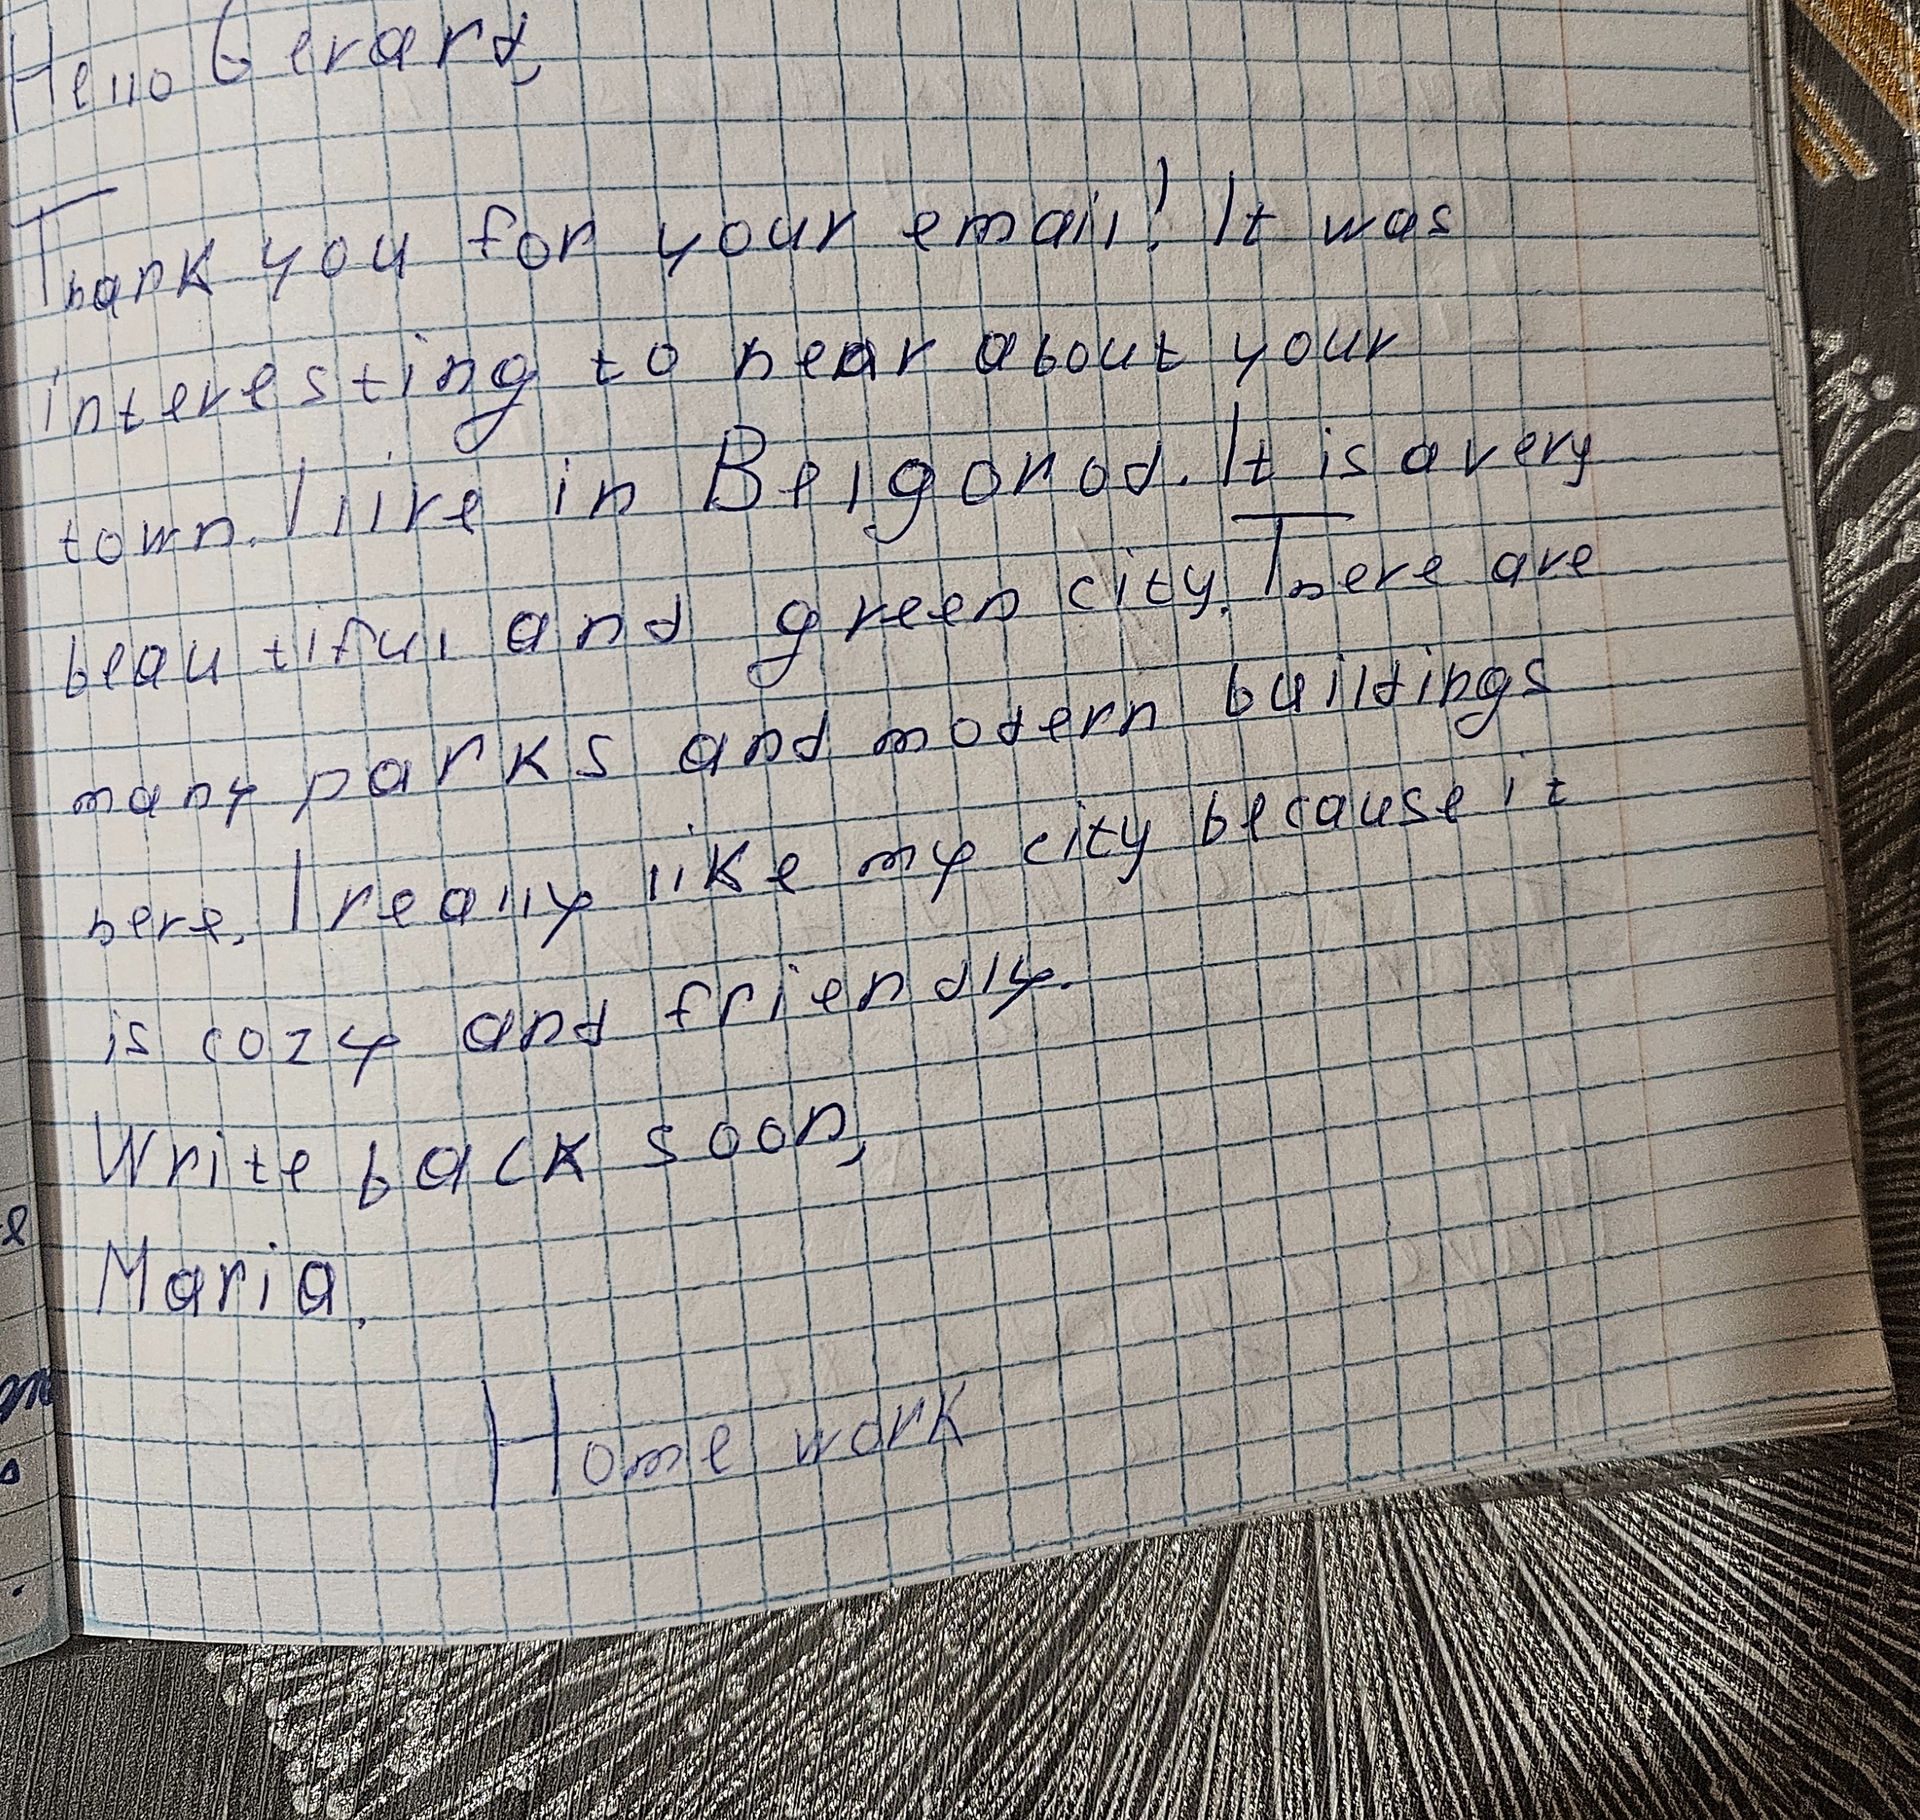 Hello Gerard,
Thank you for your email! It was
interesting to hear about your
town. I live in Belgorod. It is a very
beautiful and green city. There are
many parks and modern buildings
here. I really like my city because it
is cozy and friendly.
Write back soon,
Maria.
Home work